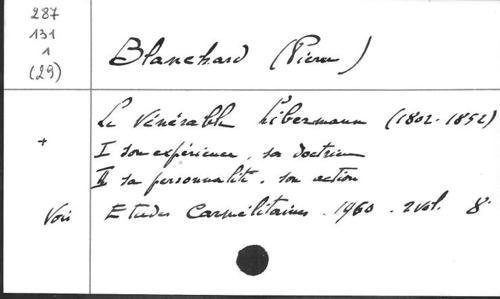 287
131
1
(29)
Blanchard (Pierre)
Le Vénérable Libermann (1802-1852)
+
I son expérience, sa doctrine
II sa personnalité, son action
Voir Etudes Carmélitaines. 1960. 2 vol. 8°